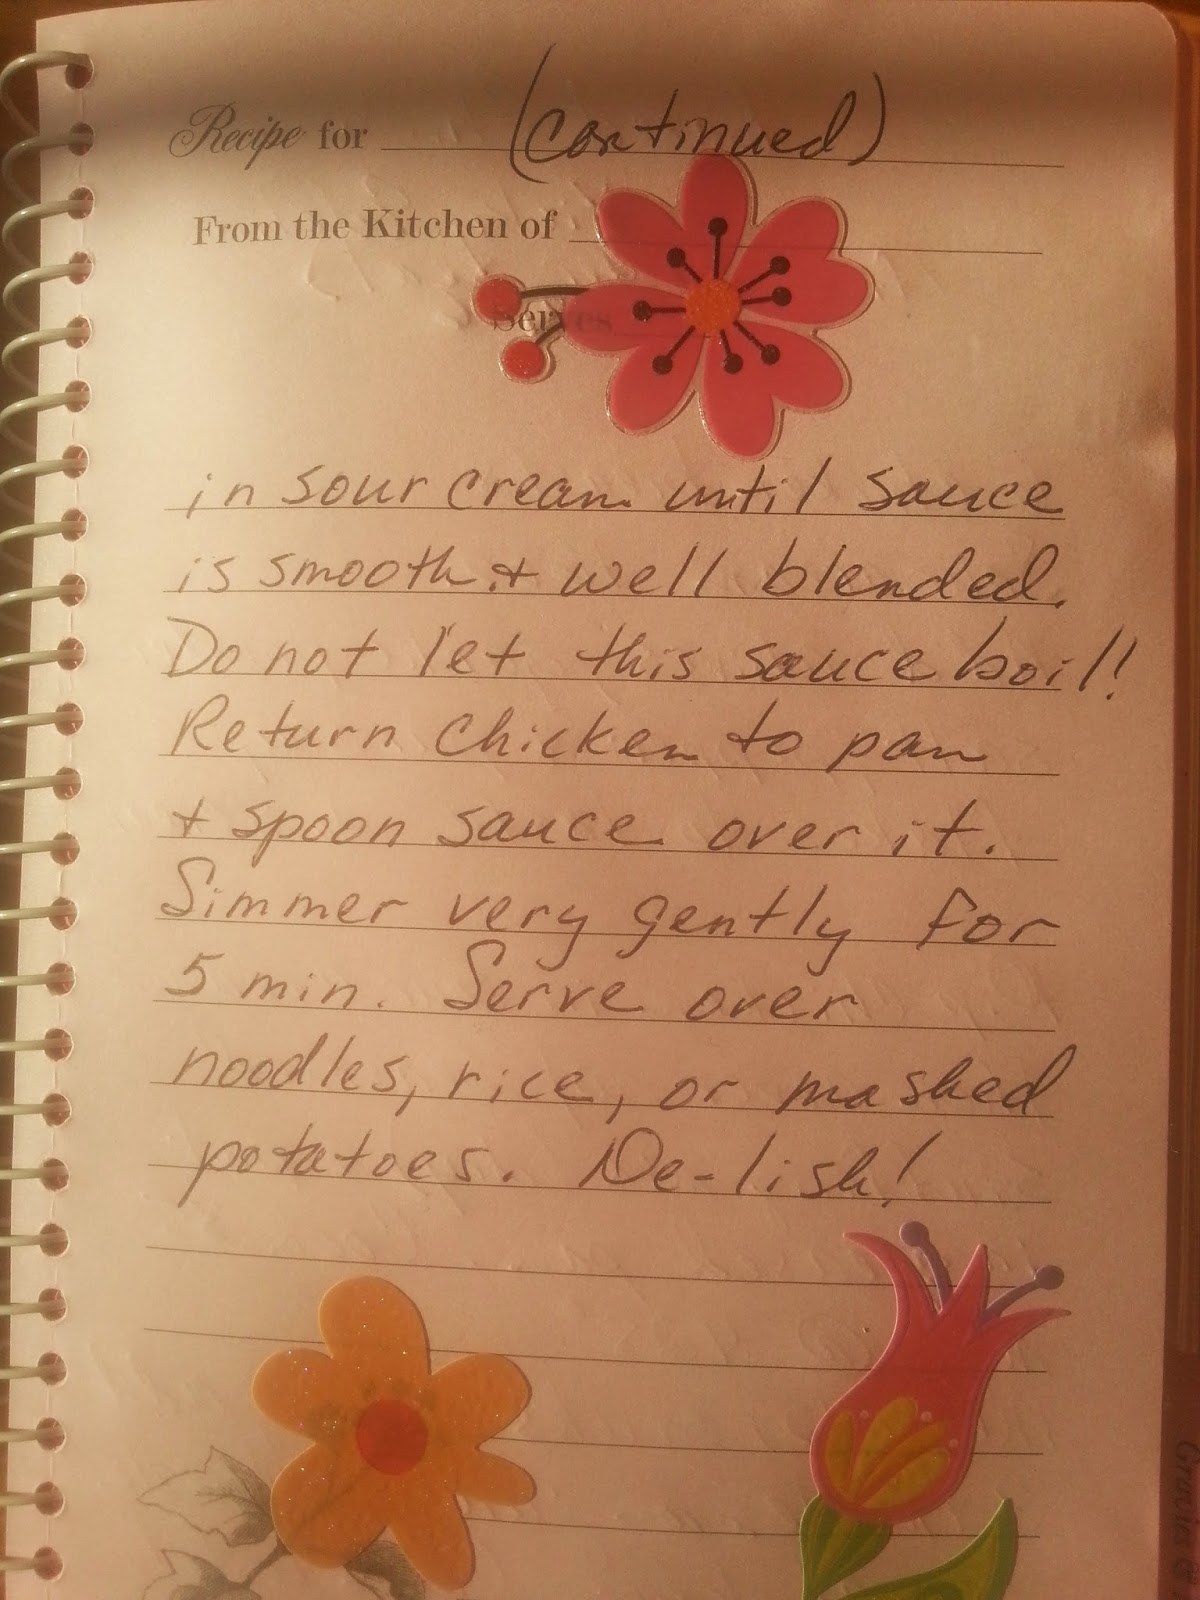 Recipe for (continued)
From the Kitchen of
Serves
in sour cream until sauce
is smooth & well blended.
Do not let this sauce boil!
Return chicken to pan
& spoon sauce over it.
Simmer very gently for
5 min. Serve over
noodles, rice, or mashed
potatoes. De-lish!